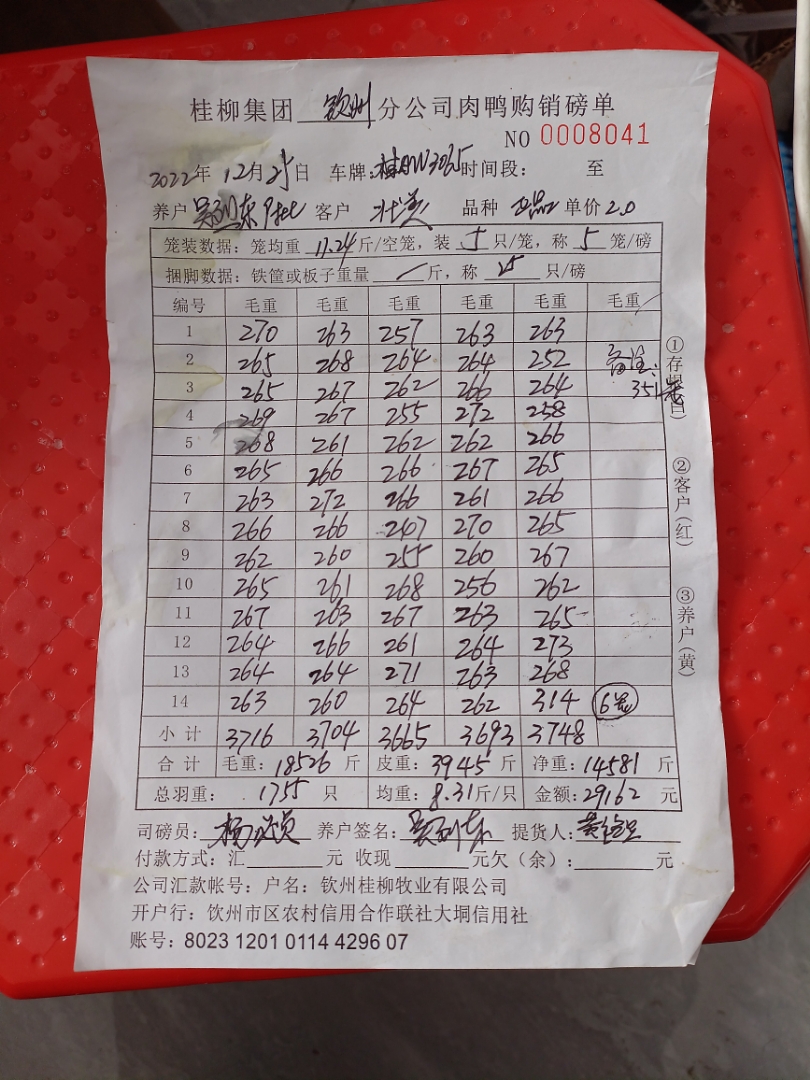 桂柳集团 钦州 分公司肉鸭购销磅单
NO 0008041
2022年 12月25日 车牌: 时间段: 至
养户 客户 品种 单价 2.0
笼装数据: 笼均重 11.24 斤/空笼, 装 5 只/笼, 称 5 笼/磅
捆脚数据: 铁筐或板子重量 斤, 称 25 只/磅
编号 毛重 毛重 毛重 毛重 毛重 毛重
1 270 263 257 263 263
2 265 268 264 264 252 备注:
3 265 267 262 266 264 351笼
4 269 267 255 272 258
5 268 261 262 262 266
6 265 266 266 267 265
7 263 272 266 261 266
8 266 266 247 270 265
9 262 260 255 260 267
10 265 261 268 256 262
11 267 263 267 263 265
12 264 266 261 264 273
13 264 264 271 263 268
14 263 260 264 262 314 6笼
小计 3716 3704 3665 3693 3748
合计 毛重: 18526 斤 皮重: 3945 斤 净重: 14581 斤
总羽重: 1755 只 均重: 8.31斤/只 金额: 29162 元
①存根(白)
②客户(红)
③养户(黄)
司磅员: 养户签名: 提货人:
付款方式: 汇 元 收现 元欠(余): 元
公司汇款帐号: 户名: 钦州桂柳牧业有限公司
开户行: 钦州市区农村信用合作联社大垌信用社
账号: 8023 1201 0114 4296 07